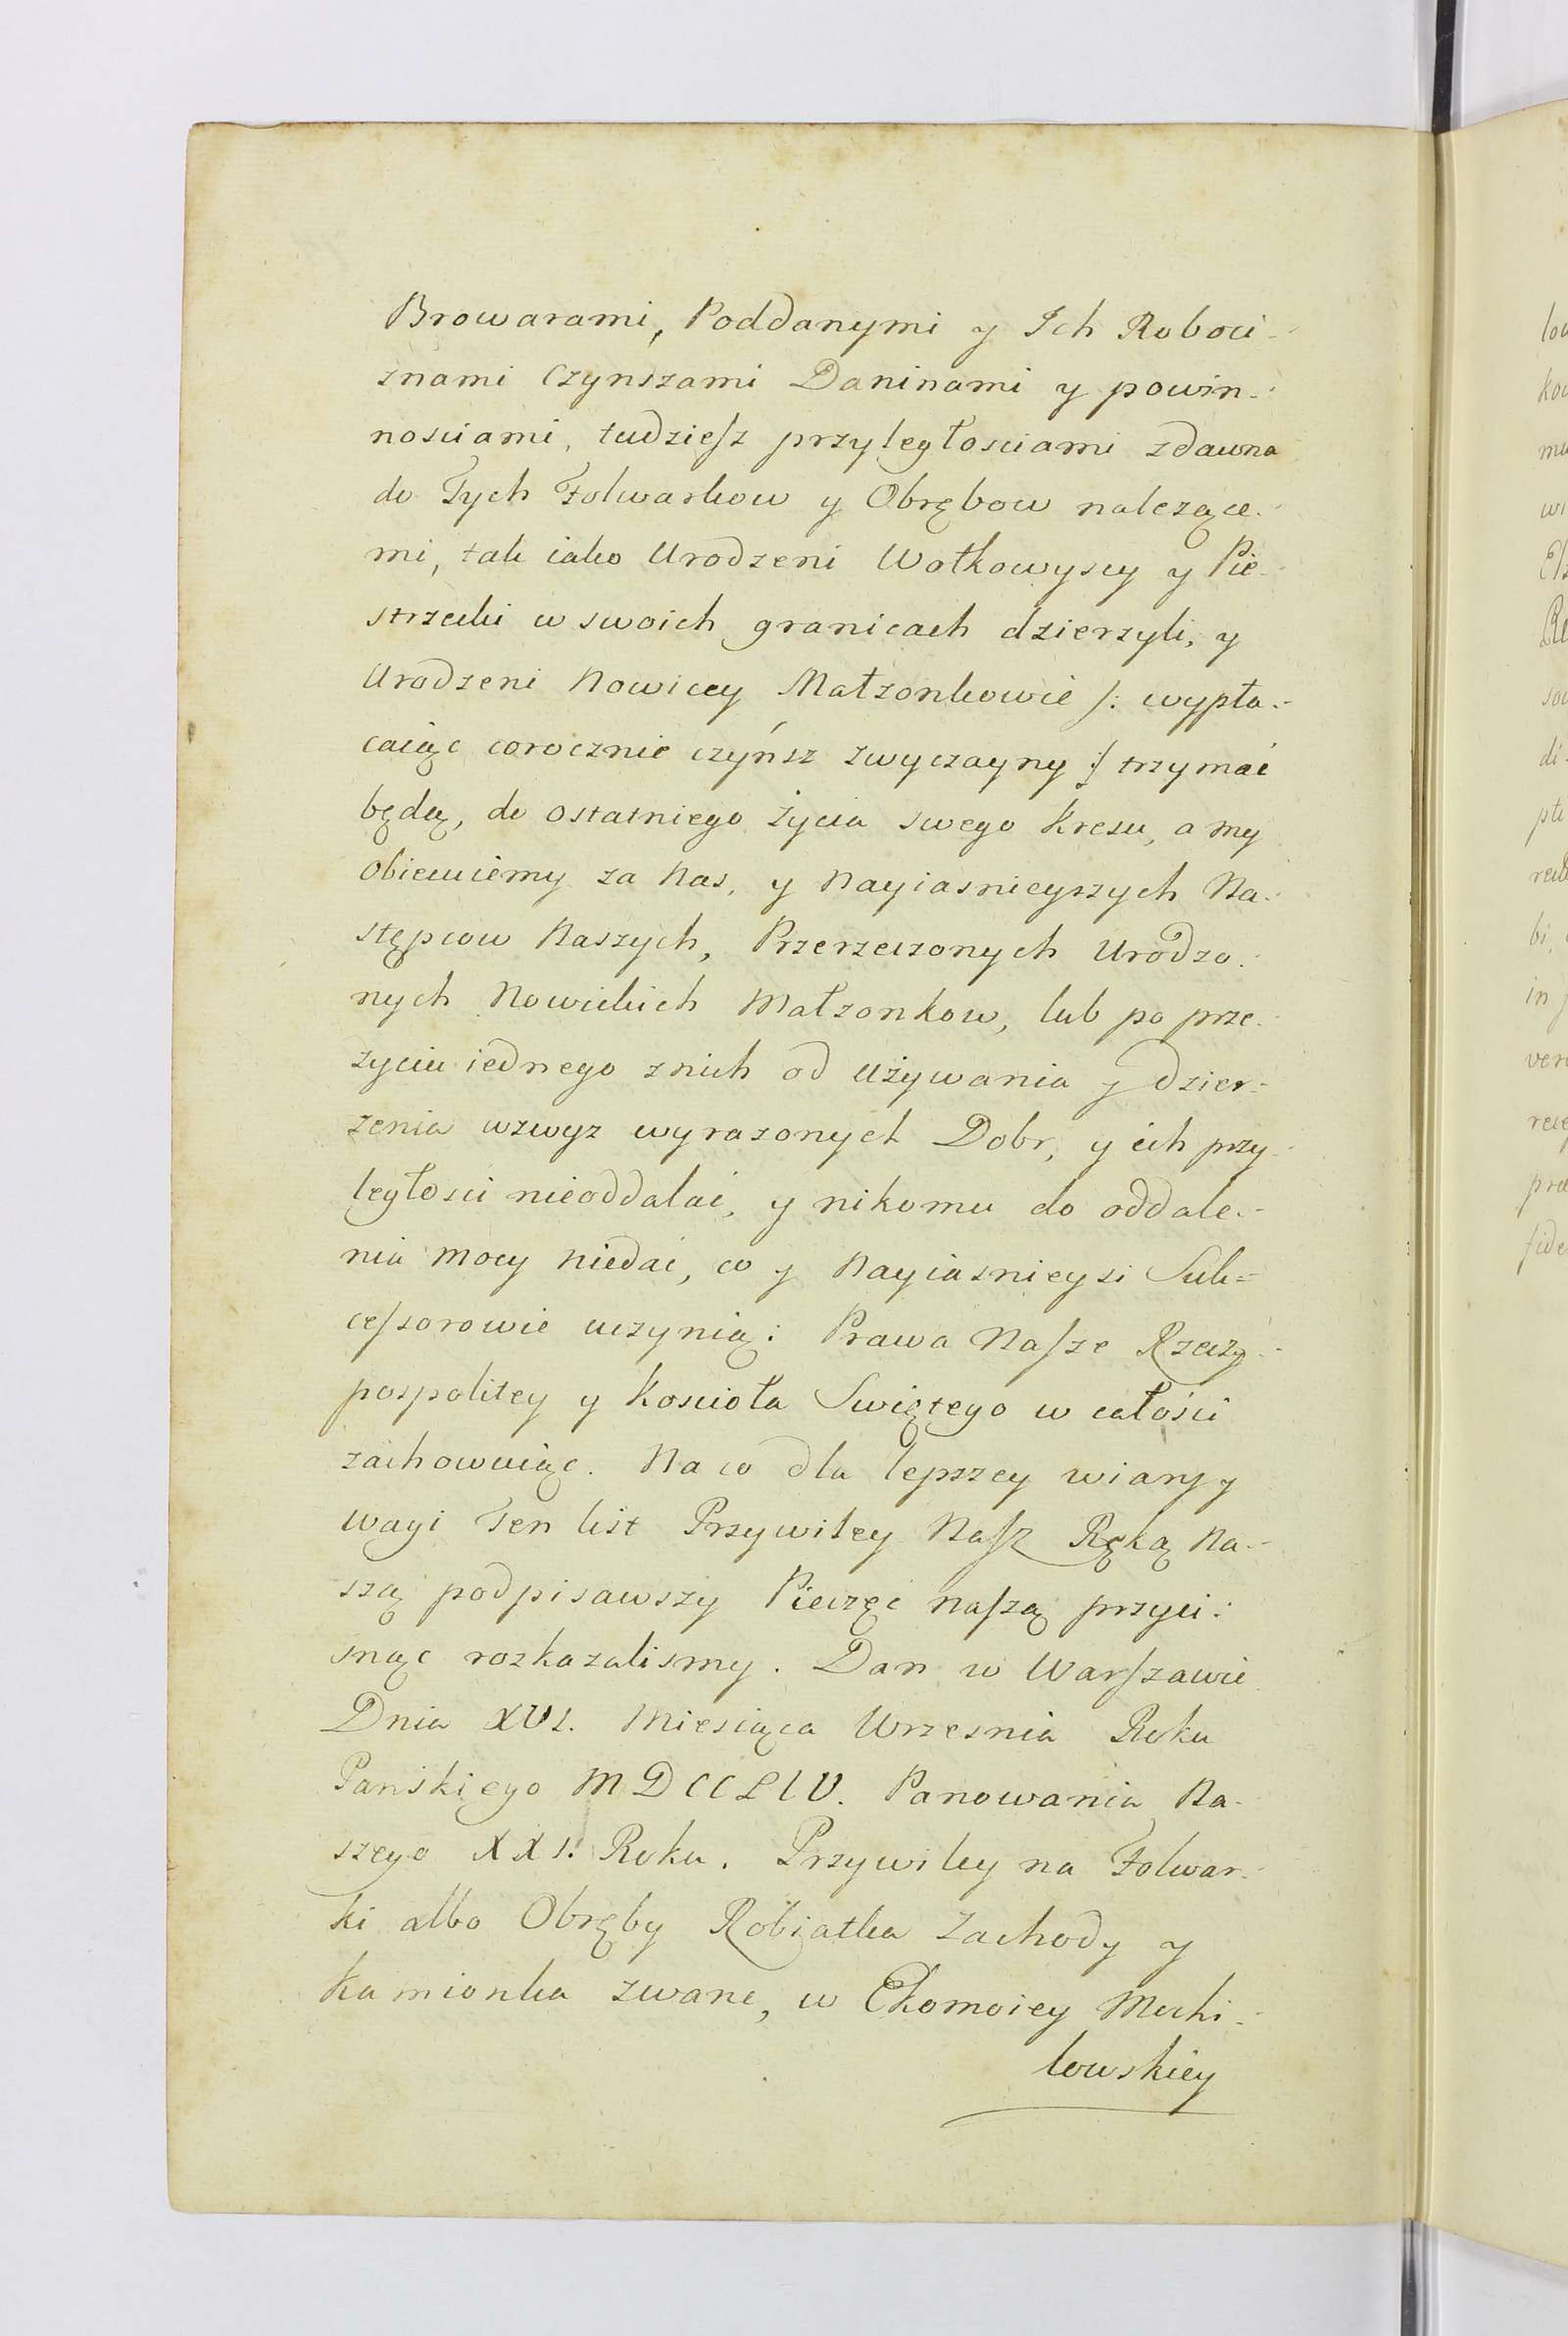 Browarami, Poddanymi y Ich Roboci-
znami Czynszami Daninami y powin-
nosciami, tudziesz przyległosciami zdawna
do Tych Folwarkow y Obrębow nalezące-
mi, tak iako Urodzeni Wołkowyscy y Pie-
strzecki w swoich granicach dzierzyli, y
Urodzeni Nowiccy Małzonkowie /: wypła-
caiąc corocznie czyńsz zwyczayny :/ trzymać
będą, do ostatniego życia swego kresu, a my
obiecuiemy za Nas, y Nayiasnieyszych Na-
stępcow Naszych, Przerzeczonych Urodzo-
nych Nowickich Małzonkow, lub po prze-
zyciu iednego znich od używania y dzier-
zenia wzwyz wyrazonych Dobr, y ich przy-
ległosci nieoddalać, y nikomu do oddale-
nia mocy niedać, co y Nayiasnieysi Suk=
cessorowie uczynią: Prawa Nasze Rzeczy-
pospolitey y Koscioła Swiętego w całości
zachowuiąc. Na co dla lepszey wiary y
wagi Ten list Przywiley Nasz Ręką Na-
szą podpisawszy Pieczęć naszą przyci-
snąc rozkazalismy. Dan w Warszawie
Dnia XVI. Miesiąca Wrzesnia Roku
Pańskiego MDCCLIV. Panowania Na-
szego XXI. Roku. Przywiley na Folwar-
ki albo Obręby Robiatka Zachody y
Kamionka zwane, w Ekomoiey Mochi-
lowskiey